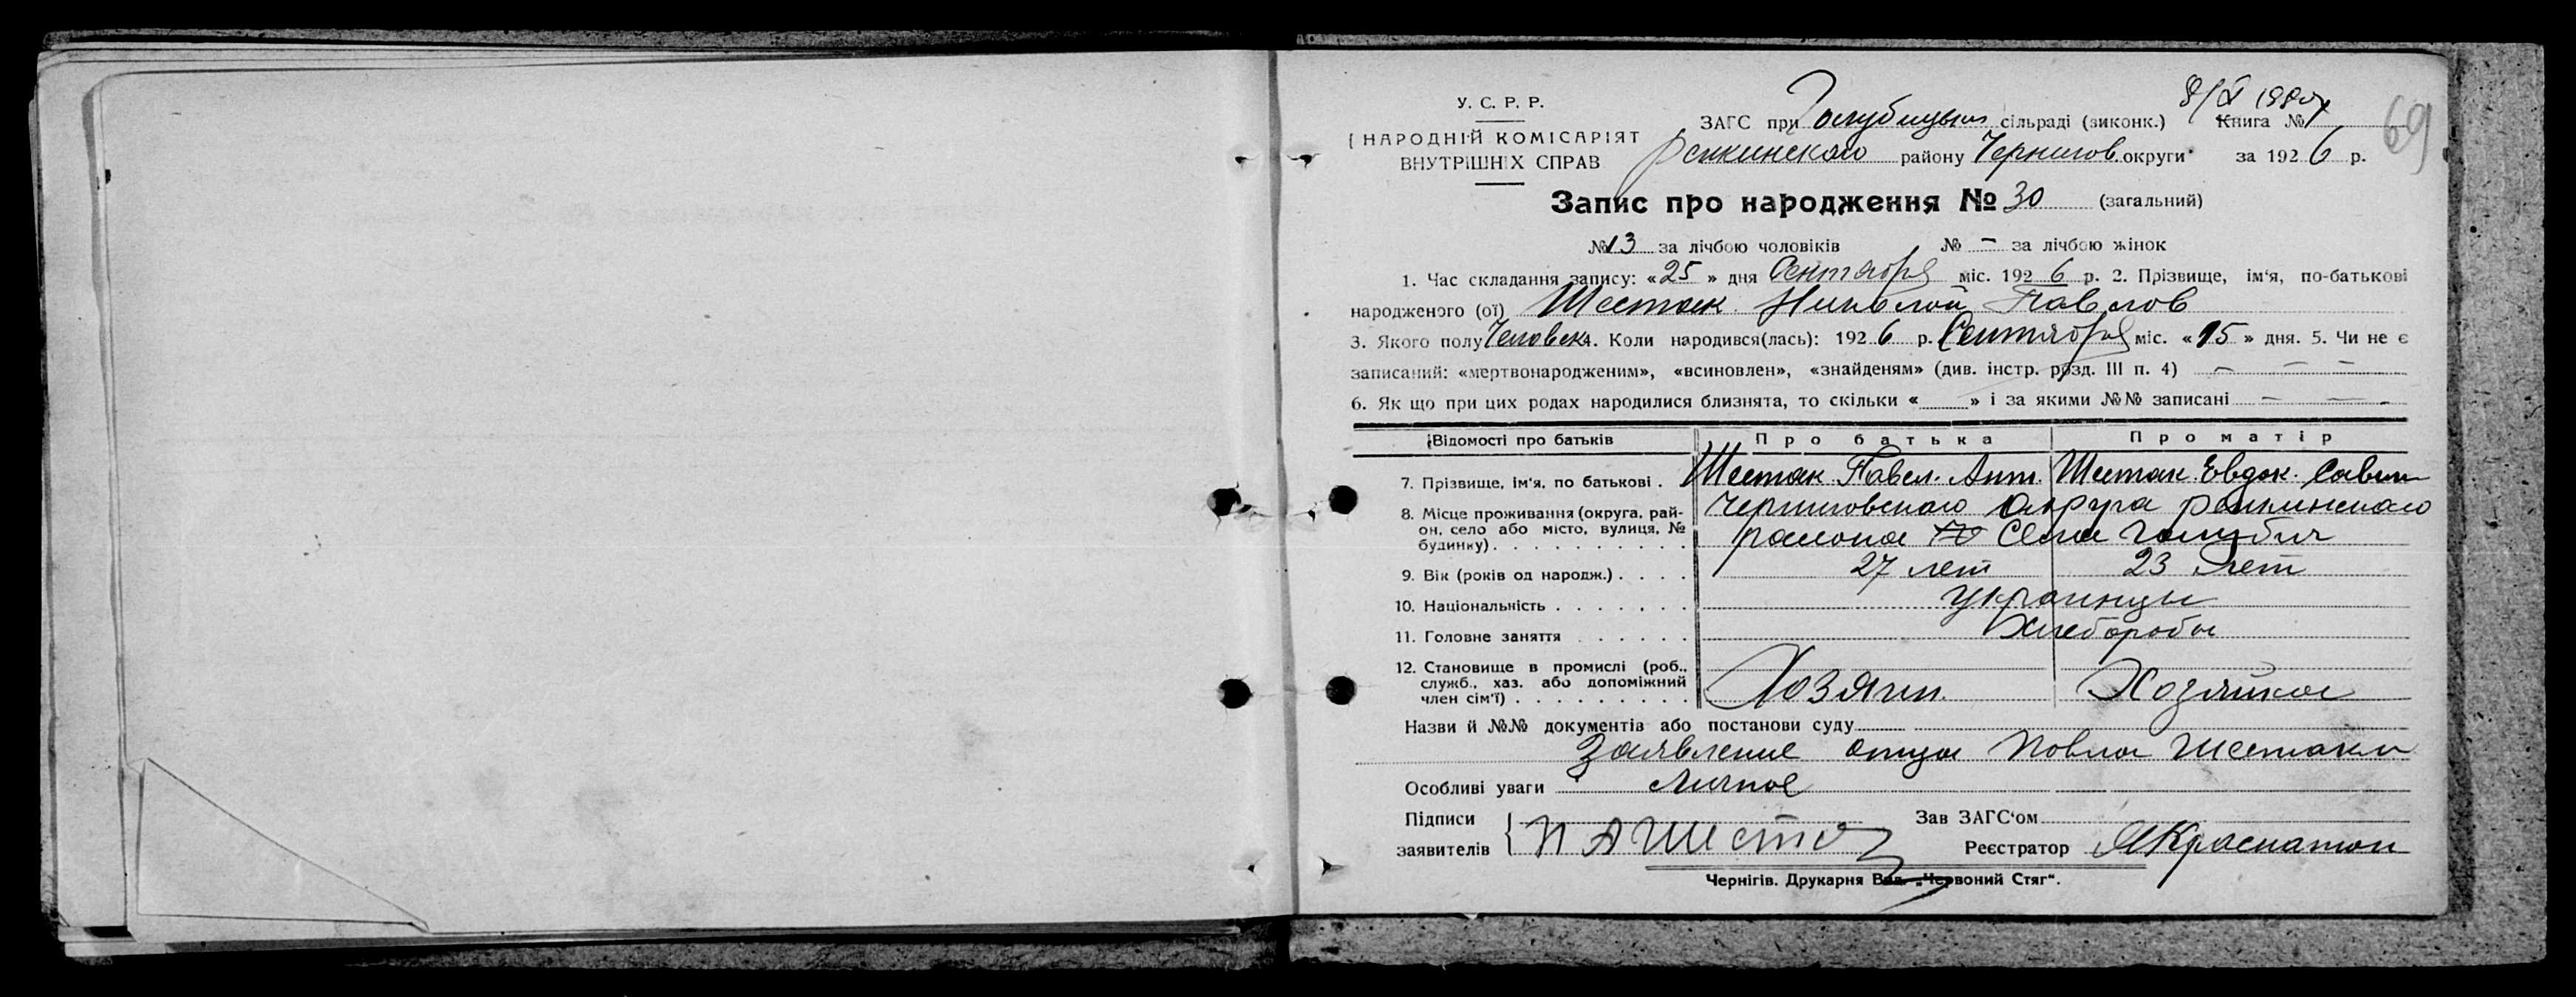 У. С. Р. Р.
НАРОДНІЙ КОМІСАРІЯТ
ВНУТРІШНІХ СПРАВ
ЗАГС при сільраді (виконк.) Книга №
Репкинского району Чернигов. округи за 1926 р.
69
Запис про народження № 30 (загальний)
№ 13 за лічбою чоловіків № – за лічбою жінок
1. Час складання запису: «25» дня Сентября міс. 1926 р. 2. Прізвище, ім'я, по-батькові
народженого (ої) Шестак Николай Павлов
3. Якого полу Человек 4. Коли народився(лась): 1926 р. Сентября міс. «15» дня. 5. Чи не є
записаний: «мертвонародженим», «всиновлен», «знайденям» (див. інстр. розд. III п. 4) – – –
6. Як що при цих родах народилися близнята, то скільки « » і за якими №№ записані – – –
Відомості про батьків Про батька Про матір
7. Прізвище, ім'я, по батькові . Шестак Павел. Ант. Шестак Евдок. Савин
8. Місце проживання (округа, рай-
он, село або місто, вулиця, №
будинку) . . . . . . . . . .
Черниговского округа репкинского
района села Голубич
9. Вік (років од народж.) . . . . 27 лет 23 лет
10. Національність . . . . . . . украинцы
11. Головне заняття . . . . . . Хлеборобы
12. Становище в промислі (роб.,
служб., хаз. або допоміжний
член сім'ї) . . . . . . . . . Хозяин. Хозяйка
Назви й №№ документів або постанови суду
Заявление отца Павла Шестака
Особливі уваги личное
Підписи
заявителів П А Шеста
Зав ЗАГС'ом
Реєстратор
Чернігів. Друкарня Вид. „Червоний Стяг".